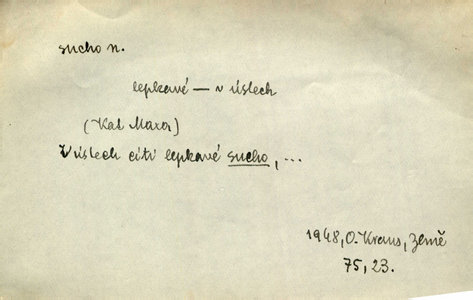 sucho n.
lepkavé — v ústech
(Kat Maxa)
V ústech cítí lepkavé sucho, ...
1948, O. Kraus, Země
75, 23.